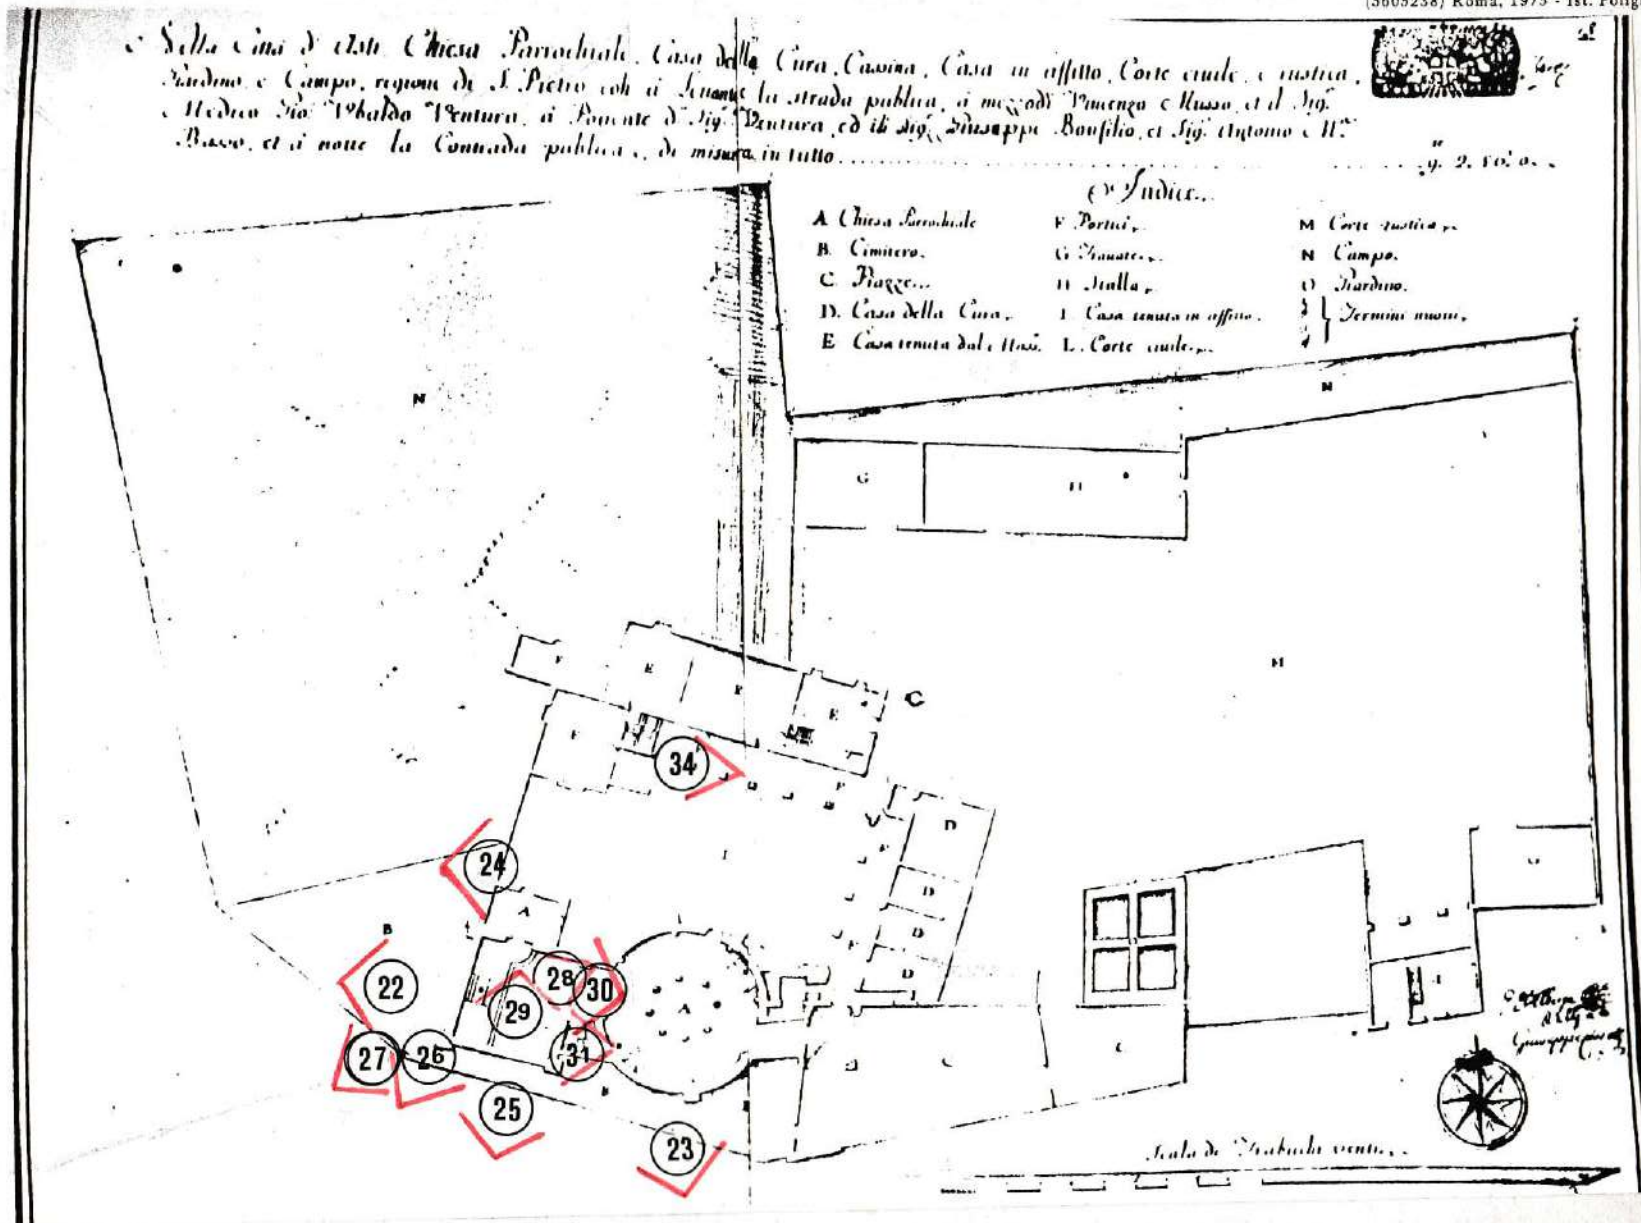 (5605238) Roma, 1975 - Ist. Polig
Della Città d'Asti. Chiesa Parrochiale, Casa della Cura, Cassina, Casa in affitto, Corte ciuile, e rustica,
Giardino, e Campo, regione di S. Pietro coh. à Leuante la strada publica, à mezzodì Vincenzo Musso, et il Sig.
Medico Gio. Vbaldo Ventura, à Ponente d. Sig. Ventura, ed ili Sig. Giuseppe Bonfilio, et Sig. Antonio M.
Basso, et à notte la Contrada publica, di misura in tutto g. 2. 80. 0.
Indice
A Chiesa Parrochiale
B. Cimitero.
C. Piazze
D. Casa della Cura,
E Casa tenuta dal Mass.
F Portici,
G
H Stalla,
I. Casa tenuta in affitto.
L. Corte ciuile
M Corte rustica
N Campo.
O Giardino.
Termini nuoui,
N
N
G
H
M
F
E
F
E
F
34
F
D
F
I
24
D
A
B
D
F
D
22
28
30
29
A
I
27
26
31
C
C
B
25
23
Scala di Trabuchi venti